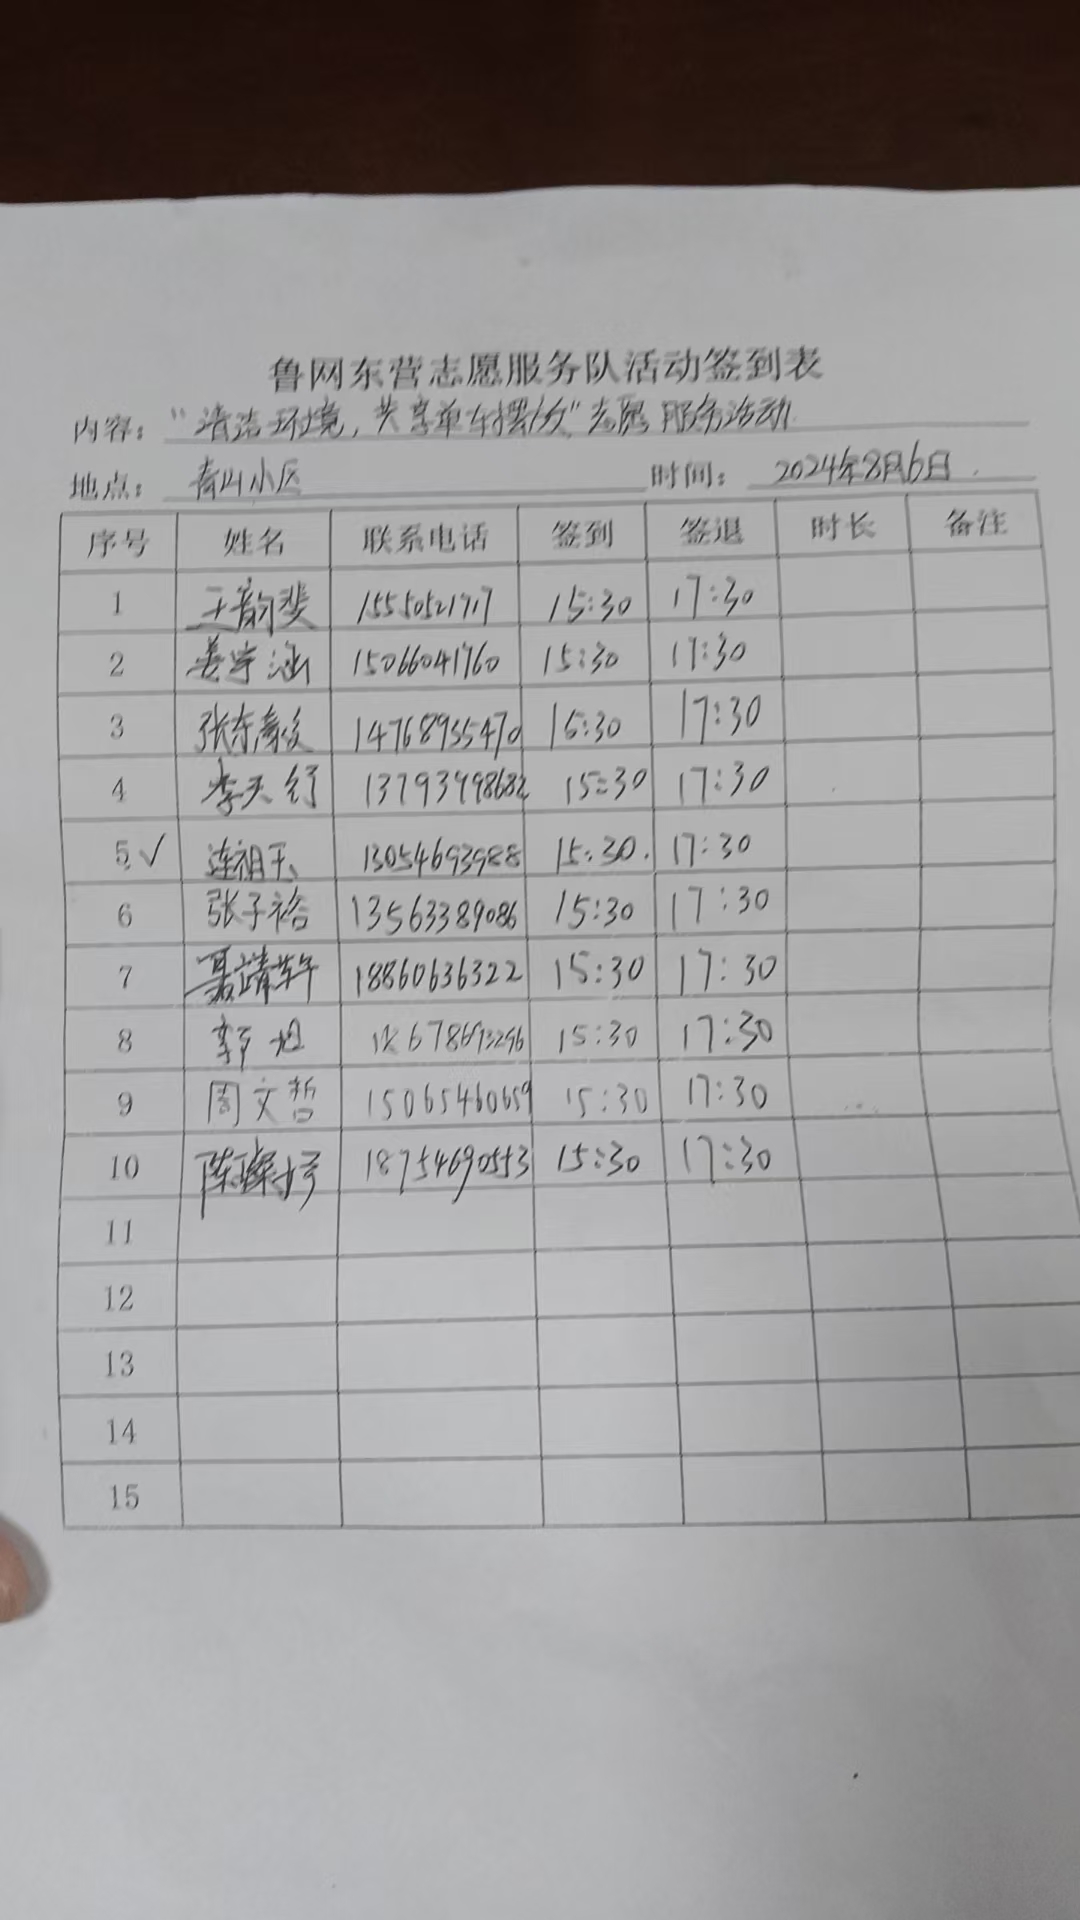 鲁网东营志愿服务队活动签到表
内容： “清洁环境，共享单车摆放”志愿服务活动
地点： 青山小区 时间： 2024年8月6日
序号 姓名 联系电话 签到 签退 时长 备注
1 王韵斐 15:30 17:30
2 姜宇涵 15066041760 15:30 17:30
3 14768955470 15:30 17:30
4 李天行 15:30 17:30
5 √ 连祖玉 13054693988 15:30. 17:30
6 张子裕 13563389086 15:30 17:30
7 18860636322 15:30 17:30
8 15:30 17:30
9 周文哲 15065460659 15:30 17:30
10 18754690553 15:30 17:30
11
12
13
14
15